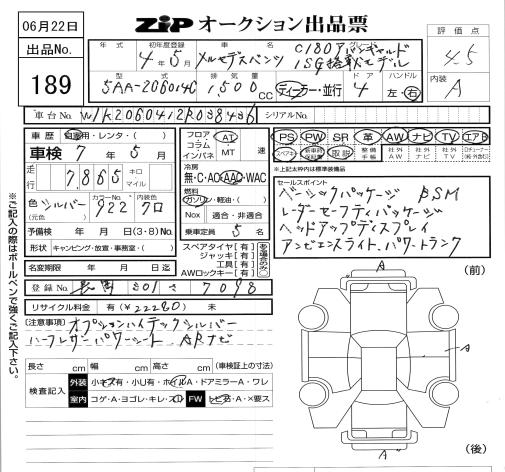 06月22日
ZIP オークション出品票
出品No.
189
年式 初年度登録 車名 グレード 評価点
4年5月 メルセデスベンツ C180アバンギャルド ISG搭載モデル 4.5
型式 排気量 ドア ハンドル 内装
5AA-206041C 1,500 cc ディーラー・並行 4 左・右 A
車台No. シリアルNo.
車歴 自家用・レンタ・( )
車検 7年 5月
走行 7,865 キロ マイル
色 (元色) シルバー カラーNo. 922 内装 クロ
予備検 年 月 日 (3・8) No.
形状 キャンピング・放置・事務室・( )
名変期限 年 月 日迄
フロア コラム インパネ AT MT 速
冷房
無・C・AC・AAC・WAC
燃料
ガソリン・軽油・( )
Nox 適合・非適合
乗車定員 5 名
スペアタイヤ【有】
ジャッキ【有】
工具【有】
AWロックキー【有】
PS PW SR 革 AW ナビ TV エアB
スペアキー 取説 整備手帳 社外AW 社外ナビ 社外TV
※上記太枠内は標準装備品
セールスポイント
ベーシックパッケージ BSM
レーダーセーフティパッケージ
ヘッドアップディスプレイ
アンビエンスライト、パワートランク
登録No. 長岡 301 さ 7098
リサイクル料金 有(¥22280) 無
【注意事項】オプションハイテックシルバー
ハーフレザーパワーシート ARナビ
長さ cm 幅 cm 高さ cm (車検証上の寸法)
検査記入 外装 小キズ有・小U有・ホイルA・ドアミラーA・ワレ
室内 コゲ・A・ヨゴレ・キレ・スリ FW トビ石・A・×要ス
※ご記入の際はボールペンで強くご記入下さい。
(前)
A
A
A
(後)